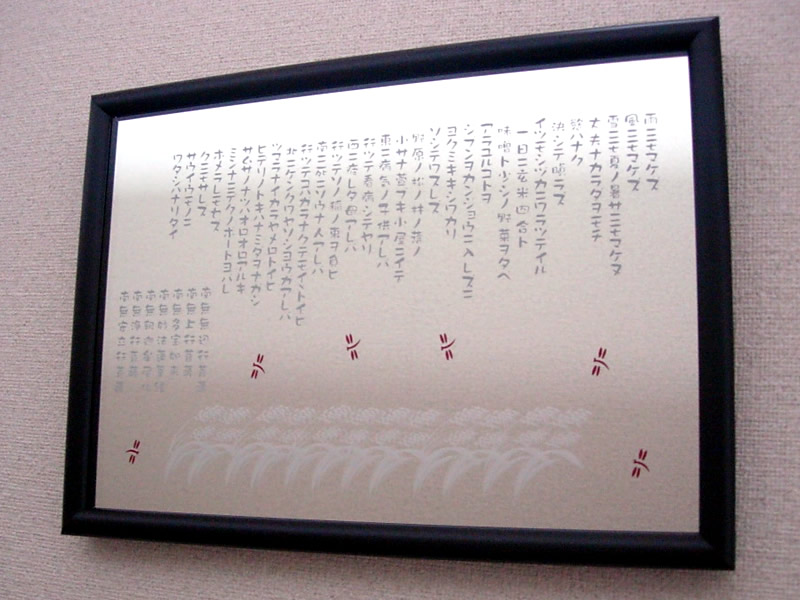 雨ニモマケズ
風ニモマケズ
雪ニモ夏ノ暑サニモマケヌ
丈夫ナカラダヲモチ
慾ハナク
決シテ瞋ラズ
イツモシヅカニワラッテイル
一日ニ玄米四合ト
味噌ト少シノ野菜ヲタベ
アラユルコトヲ
ジブンヲカンジョウニ入レズニ
ヨクミキキシワカリ
ソシテワスレズ
野原ノ松ノ林ノ蔭ノ
小サナ萱ブキ小屋ニイテ
東ニ病気ノ子供アレバ
行ッテ看病シテヤリ
西ニ疲レタ母アレバ
行ッテソノ稲ノ束ヲ負ヒ
南ニ死ニソウナ人アレバ
行ッテコハガラナクテモイヽトイヒ
北ニケンクヮヤソショウガアレバ
ツマラナイカラヤメロトイヒ
ヒデリノトキハナミダヲナガシ
サムサノナツハオロオロアルキ
ミンナニデクノボートヨバレ
ホメラレモセズ
クニモサレズ
サウイウモノニ
ワタシハナリタイ
南無無辺行菩薩
南無上行菩薩
南無多宝如来
南無妙法蓮華経
南無釈迦牟尼仏
南無浄行菩薩
南無安立行菩薩